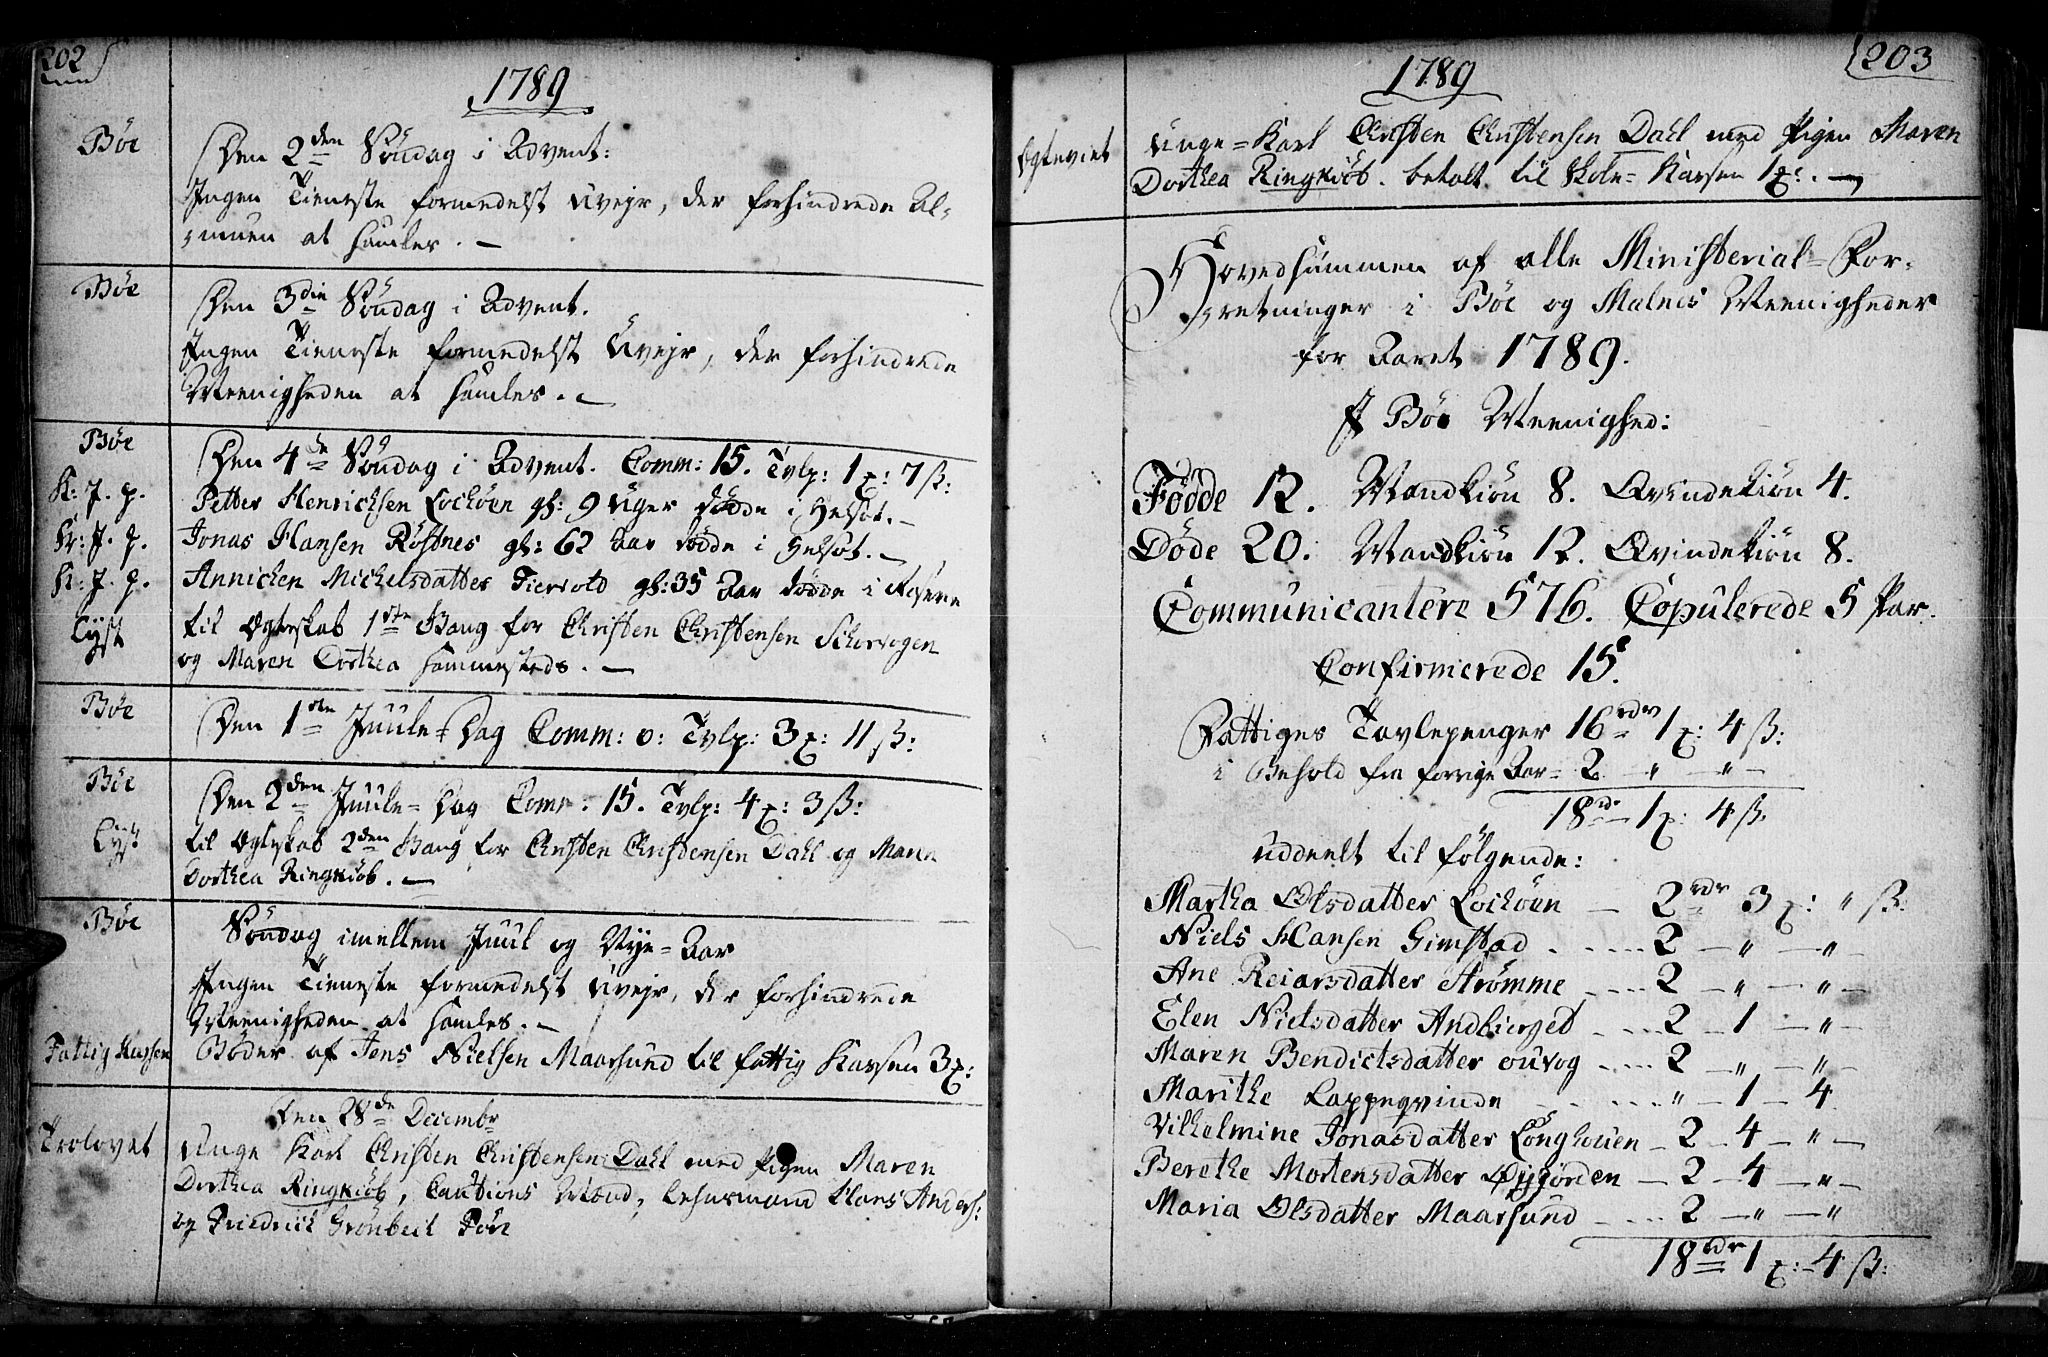 202
1789
Bøe
Den 2den Søndag i Advent:
Ingen Tieneste formedelst Uvejr, der forhindrede Al-
muen at samles. —
Bøe
Den 3die Søndag i Advent.
Ingen Tieneste formedelst Uvejr, der forhindrede
Meenigheden at samles. —
Bøe
Den 4de Søndag i Advent. Comm: 15. Tvlp: 1 ꝶ: 7 ß:
K: J. P.
Petter Henrichsen Lochøen gl: 9 Uger døde i Helsot. —
Kr: J. P.
Jonas Hansen Røsnes gl: 62 Aar døde i Helsot. —
K: J. P.
Annichen Michelsdatter Fiervold gl: 35 Aar døde i
Lyst
til Ægteskab 1ste Gang for Christen Christensen
og Maren Dorthea sammesteds. —
Bøe
Den 1ste Juule-Dag Comm: 0: Tvlp: 3 ꝶ: 11 ß:
Bøe
Den 2den Juule-Dag Comm. 15. Tvlp: 4 ꝶ: 3 ß:
Lyst
til Ægteskab 2den Gang for Christen Christensen Dahl og Maren
Dorthea Ringkiøb. —
Bøe
Søndag imellem Juul og Nye-Aar
Ingen Tieneste formedelst Uvejr, der forhindrede
Meenigheden at samles. —
Fattig Kassen
Bøder af Jens Nielsen Maarsund til fattig Kassen 3 ꝶ:
Den 28de Decembr
Trolovet
Unge Karl Christen Christensen Dahl med Pigen Maren
Dorthea Ringkiøb, Cautions Mænd, Lehnsmand Hans Anders:
og Friedrich Grönbeck Bøe
203
1789
Ægteviet
Unge-Karl Christen Christensen Dahl med Pigen Maren
Dorthea Ringkiøb. betalt til Skole-Kassen 1 ꝶ: . —
Hovedsummen af alle Ministerial-For-
retninger i Bøe og Malnes Meenigheder
for Aaret 1789.
I Bøe Meenighed:
Fødde 12. Mandkiøn 8. Qvindekiøn 4.
Døde 20. Mandkiøn 12. Qvindekiøn 8.
Communicantere 576. Copulerede 5 Par.
Confirmerede 15.
Fattiges Tavlepenger 16 rdr 1 ꝶ: 4 ß:
i Behold fra forrige Aar - 2 — " — " —
18 rdr 1 ꝶ: 4 ß.
uddeelt til følgende:
Martha Olsdatter Lochøen — 2 rdr 3 ꝶ: " ß:
Niels Hansen Gimstad ..... 2 — " — " —
Ane Reiarsdatter Strømme ..... 2 — " — " —
Elen Nielsdatter Andbierget ..... 2 — 1 — " —
Maren Bendictsdatter ouvog ..... 2 — " — " —
Marithe Lappeqvinde ..... " — 1 — 4.
Vilhelmine Jonasdatter Longhouen — 2 — 4 — " —
Berethe Mortensdatter Øygorden — 2 — 4 — " —
Maria Olsdatter Maarsund ..... 2 — " — "
18 rdr 1 ꝶ: — 4 ß: